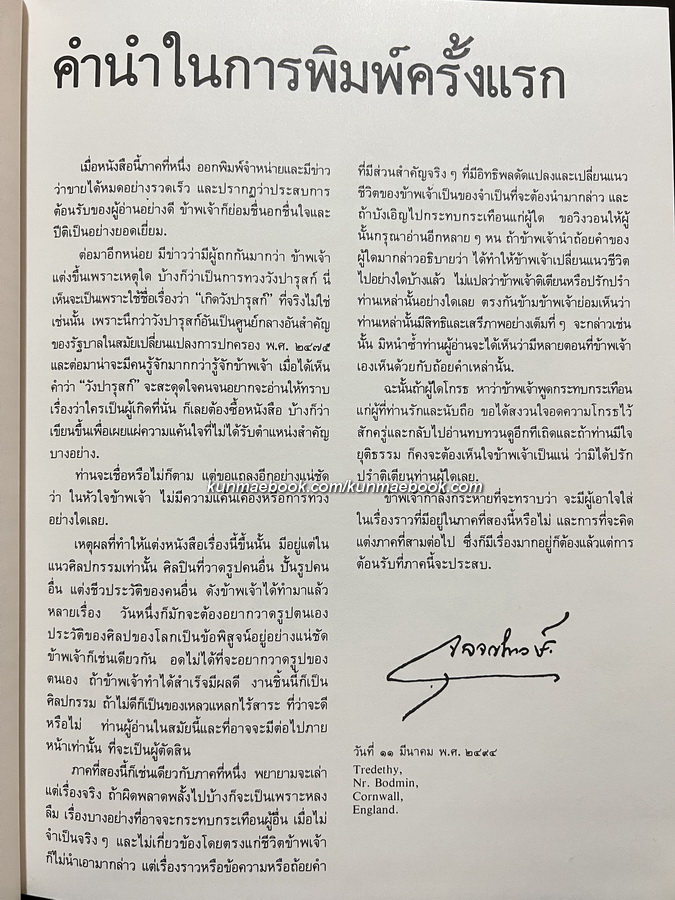 คำนำในการพิมพ์ครั้งแรก
เมื่อหนังสือนี้ภาคที่หนึ่ง ออกพิมพ์จำหน่ายและมีข่าว
ว่าขายได้หมดอย่างรวดเร็ว และปรากฏว่าประสบการ
ต้อนรับของผู้อ่านอย่างดี ข้าพเจ้าก็ย่อมชื่นอกชื่นใจและ
ปีติเป็นอย่างยอดเยี่ยม.
ต่อมาอีกหน่อย มีข่าวว่ามีผู้ถกกันมากว่า ข้าพเจ้า
แต่งขึ้นเพราะเหตุใด บ้างก็ว่าเป็นการทวงวังปารุสก์ นี่
เห็นจะเป็นเพราะใช้ชื่อเรื่องว่า "เกิดวังปารุสก์" ที่จริงไม่ใช่
เช่นนั้น เพราะนึกว่าวังปารุสก์อันเป็นศูนย์กลางอันสำคัญ
ของรัฐบาลในสมัยเปลี่ยนแปลงการปกครอง พ.ศ. ๒๔๗๕
และต่อมาน่าจะมีคนรู้จักมากกว่ารู้จักข้าพเจ้า เมื่อได้เห็น
คำว่า "วังปารุสก์" จะสะดุดใจคนจนอยากจะอ่านให้ทราบ
เรื่องว่าใครเป็นผู้เกิดที่นั่น ก็เลยต้องซื้อหนังสือ บ้างก็ว่า
เขียนขึ้นเพื่อเผยแผ่ความแค้นใจที่ไม่ได้รับตำแหน่งสำคัญ
บางอย่าง.
ท่านจะเชื่อหรือไม่ก็ตาม แต่ขอแถลงอีกอย่างแน่ชัด
ว่า ในหัวใจข้าพเจ้า ไม่มีความแค้นเคืองหรือการทวง
อย่างใดเลย.
เหตุผลที่ทำให้แต่งหนังสือเรื่องนี้ขึ้นนั้น มีอยู่แต่ใน
แนวศิลปกรรมเท่านั้น ศิลปินที่วาดรูปคนอื่น ปั้นรูปคน
อื่น แต่งชีวประวัติของคนอื่น ดังข้าพเจ้าได้ทำมาแล้ว
หลายเรื่อง วันหนึ่งก็มักจะต้องอยากวาดรูปตนเอง
ประวัติของศิลปของโลกเป็นข้อพิสูจน์อยู่อย่างแน่ชัด
ข้าพเจ้าก็เช่นเดียวกัน อดไม่ได้ที่จะอยากวาดรูปของ
ตนเอง ถ้าข้าพเจ้าทำได้สำเร็จมีผลดี งานชิ้นนี้ก็เป็น
ศิลปกรรม ถ้าไม่ดีก็เป็นของเหลวแหลกไร้สาระ ที่ว่าจะดี
หรือไม่ ท่านผู้อ่านในสมัยนี้และที่อาจจะมีต่อไปภาย
หน้าเท่านั้น ที่จะเป็นผู้ตัดสิน
ภาคที่สองนี้ก็เช่นเดียวกับภาคที่หนึ่ง พยายามจะเล่า
แต่เรื่องจริง ถ้าผิดพลาดพลั้งไปบ้างก็จะเป็นเพราะหลง
ลืม เรื่องบางอย่างที่อาจจะกระทบกระเทือนผู้อื่น เมื่อไม่
จำเป็นจริง ๆ และไม่เกี่ยวข้องโดยตรงแก่ชีวิตข้าพเจ้า
ก็ไม่นำเอามากล่าว แต่เรื่องราวหรือข้อความหรือถ้อยคำ
ที่มีส่วนสำคัญจริง ๆ ที่มีอิทธิพลดัดแปลงและเปลี่ยนแนว
ชีวิตของข้าพเจ้าเป็นของจำเป็นที่จะต้องนำมากล่าว และ
ถ้าบังเอิญไปกระทบกระเทือนแก่ผู้ใด ขอวิงวอนให้ผู้
นั้นกรุณาอ่านอีกหลาย ๆ หน ถ้าข้าพเจ้านำถ้อยคำของ
ผู้ใดมากล่าวอธิบายว่า ได้ทำให้ข้าพเจ้าเปลี่ยนแนวชีวิต
ไปอย่างใดบ้างแล้ว ไม่แปลว่าข้าพเจ้าติเตียนหรือปรักปรำ
ท่านเหล่านั้นอย่างใดเลย ตรงกันข้ามข้าพเจ้าย่อมเห็นว่า
ท่านเหล่านั้นมีสิทธิและเสรีภาพอย่างเต็มที่ ๆ จะกล่าวเช่น
นั้น มิหนำซ้ำท่านผู้อ่านจะได้เห็นว่ามีหลายตอนที่ข้าพเจ้า
เองเห็นด้วยกับถ้อยคำเหล่านั้น.
ฉะนั้นถ้าผู้ใดโกรธ หาว่าข้าพเจ้าพูดกระทบกระเทือน
แก่ผู้ที่ท่านรักและนับถือ ขอได้สงวนใจอดความโกรธไว้
สักครู่และกลับไปอ่านทบทวนดูอีกทีเถิดและถ้าท่านมีใจ
ยุติธรรม ก็คงจะต้องเห็นใจข้าพเจ้าเป็นแน่ ว่ามิได้ปรัก
ปรำติเตียนท่านผู้ใดเลย.
kunmaebook.com/kunmaebook.com
ข้าพเจ้ากำลังกระหายที่จะทราบว่า จะมีผู้เอาใจใส่
ในเรื่องราวที่มีอยู่ในภาคที่สองนี้หรือไม่ และการที่จะคิด
แต่งภาคที่สามต่อไป ซึ่งก็มีเรื่องมากอยู่ก็ต้องแล้วแต่การ
ต้อนรับที่ภาคนี้จะประสบ.
วันที่ ๑๑ มีนาคม พ.ศ. ๒๔๙๔
Tredethy,
Nr. Bodmin,
Cornwall,
England.